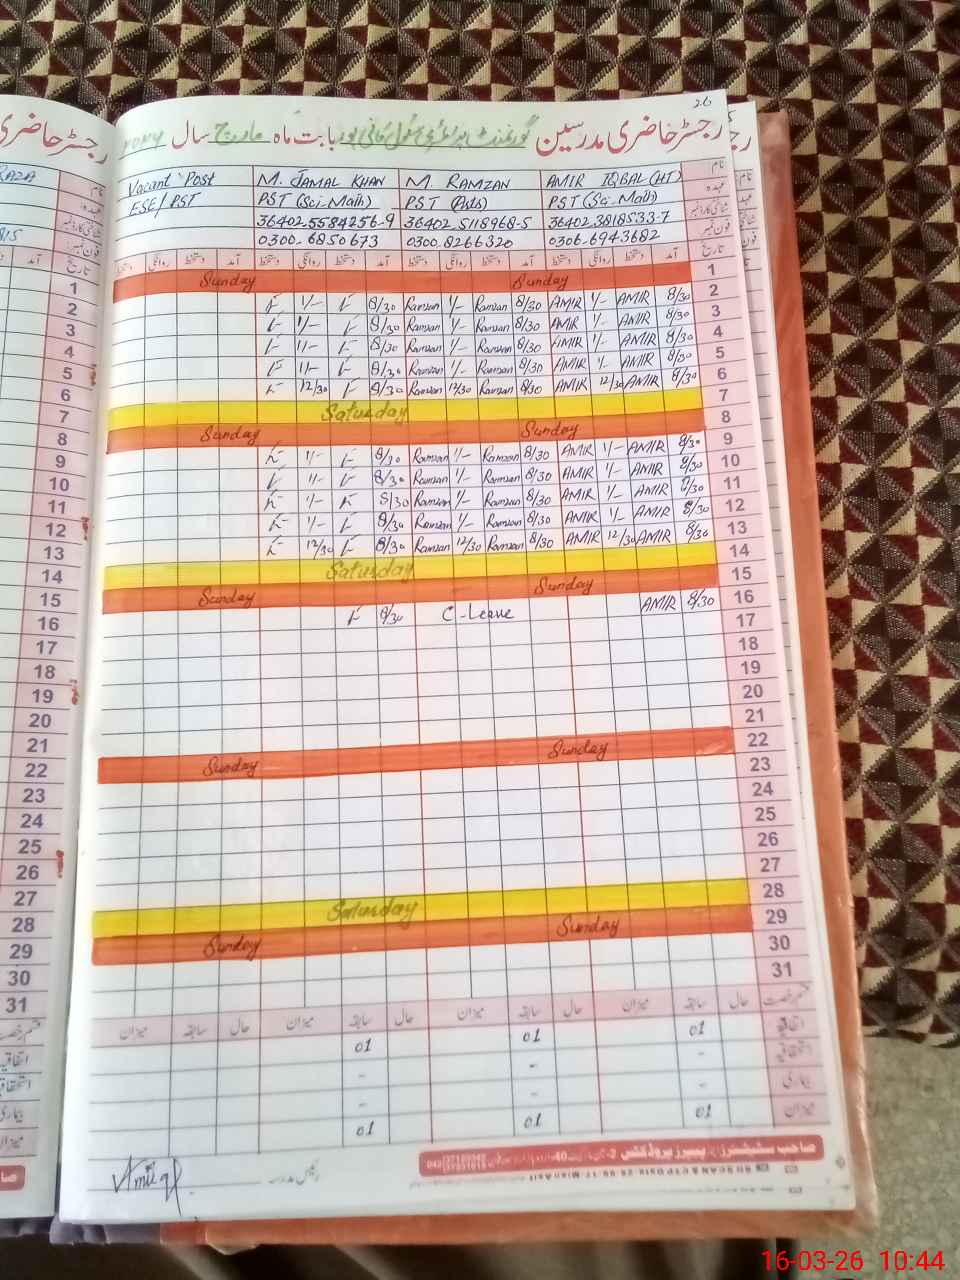 26
رجسٹر حاضری مدرسین گورنمنٹ پرائمری سکول بابت ماہ مارچ سال ۲۰۲۶
نام AMIR IQBAL (HT) M. RAMZAN M. JAMAL KHAN Vacant Post
عہدہ PST (Sci-Math) PST (Arts) PST (Sci-Math) ESE/PST
شناختی کارڈ نمبر 36402.3818533-7 36402.5118968-5 36402.5584256-9
فون نمبر 0306.6943682 0300.8266320 0300.6850673
تاریخ آمد دستخط روانگی دستخط آمد دستخط روانگی دستخط آمد دستخط روانگی دستخط آمد دستخط روانگی دستخط
1 Sunday Sunday
2 8/30 AMIR 1/- AMIR 8/30 Ramzan 1/- Ramzan 8/30 1/-
3 8/30 AMIR 1/- AMIR 8/30 Ramzan 1/- Ramzan 8/30 1/-
4 8/30 AMIR 1/- AMIR 8/30 Ramzan 1/- Ramzan 8/30 1/-
5 8/30 AMIR 1/- AMIR 8/30 Ramzan 1/- Ramzan 8/30 1/-
6 8/30 AMIR 12/30 AMIR 8/30 Ramzan 12/30 Ramzan 8/30 12/30
7 Saturday
8 Sunday Sunday
9 8/30 AMIR 1/- AMIR 8/30 Ramzan 1/- Ramzan 8/30 1/-
10 8/30 AMIR 1/- AMIR 8/30 Ramzan 1/- Ramzan 8/30 1/-
11 8/30 AMIR 1/- AMIR 8/30 Ramzan 1/- Ramzan 8/30 1/-
12 8/30 AMIR 1/- AMIR 8/30 Ramzan 1/- Ramzan 8/30 1/-
13 8/30 AMIR 12/30 AMIR 8/30 Ramzan 12/30 Ramzan 8/30 12/30
14 Saturday
15 Sunday Sunday
16 8/30 AMIR C-Leave 8/30
17
18
19
20
21
22 Sunday Sunday
23
24
25
26
27
28 Saturday
29 Sunday Sunday
30
31
قسم رخصت حال سابقہ میزان حال سابقہ میزان حال سابقہ میزان حال سابقہ میزان
اتفاقیہ 01 01 01
- - -
بیماری - - -
میزان 01 01 01
رئیس مدرسہ
صاحب سٹیشنرز اینڈ پیپرز پروڈکٹس
رجسٹر حاضری
RAZA
نام
عہدہ
شناختی کارڈ نمبر
فون نمبر
آمد تاریخ
1
2
3
4
5
6
7
8
9
10
11
12
13
14
15
16
17
18
19
20
21
22
23
24
25
26
27
28
29
30
31
قسم رخصت
اتفاقیہ
بیماری
میزان
16-03-26 10:44